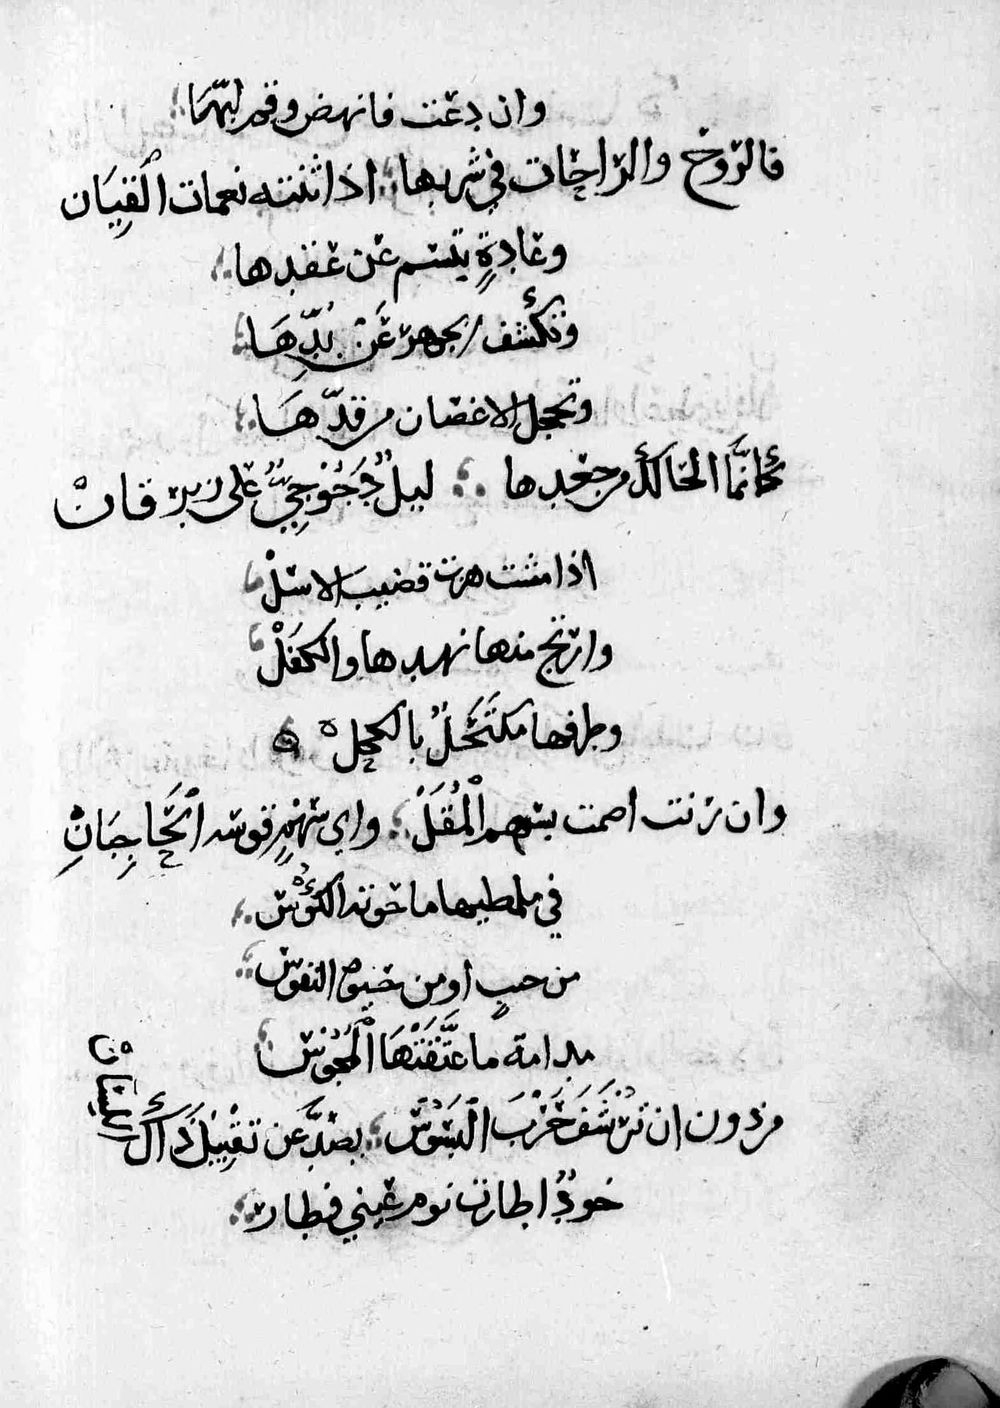 وان دعت فانهض وقم لبّهَا
فالرّوح والرّاحات في شربها اذا ثنته نعمات الْقِيَان
وغادةٍ تبسم عن عقدها
وتكشف الجوهر عَن بُدِّهَا
وتخجل الاغصان من قدّهَا
كَانمَّا الخال من جعدها ليلٌ دَجُوجِيٌّ على زبرقانْ
اذا مشت هزت قضيب الاسلْ
وارتج منها نهدها والكفلْ
وطرفها مكتَحَلٌ بالكحل
وان رنت اصمت بسهم الْمُقَلْ واي سَهْمٍ قوسه الْحَاجِبَانِ
في ملمطيها ما حوته الكؤس
من حبٍ او من حيوة النفوس
مدامة ما عتَّقَتْهَا الْمجُوس
من دون ان تُرْشَفَ حَرْبَ الْبَسُوس بصدّ عن تقْبِيْلَ ذَاكَ اللسَان
خودٌ اطارت نوم عيني فطار